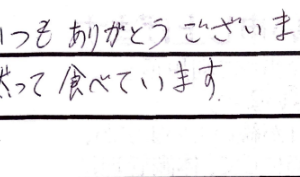 いつもありがとうございま
って食べています